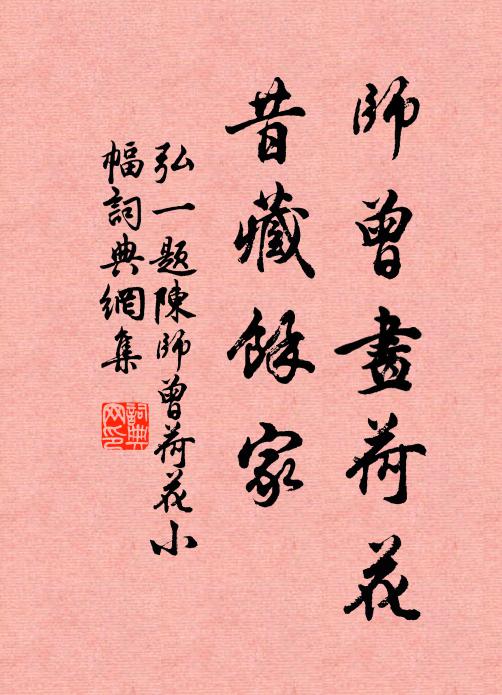 師曾畫荷花
昔藏餘家
弘一題陳師曾荷花小
幅詞典網集
詞典
网印